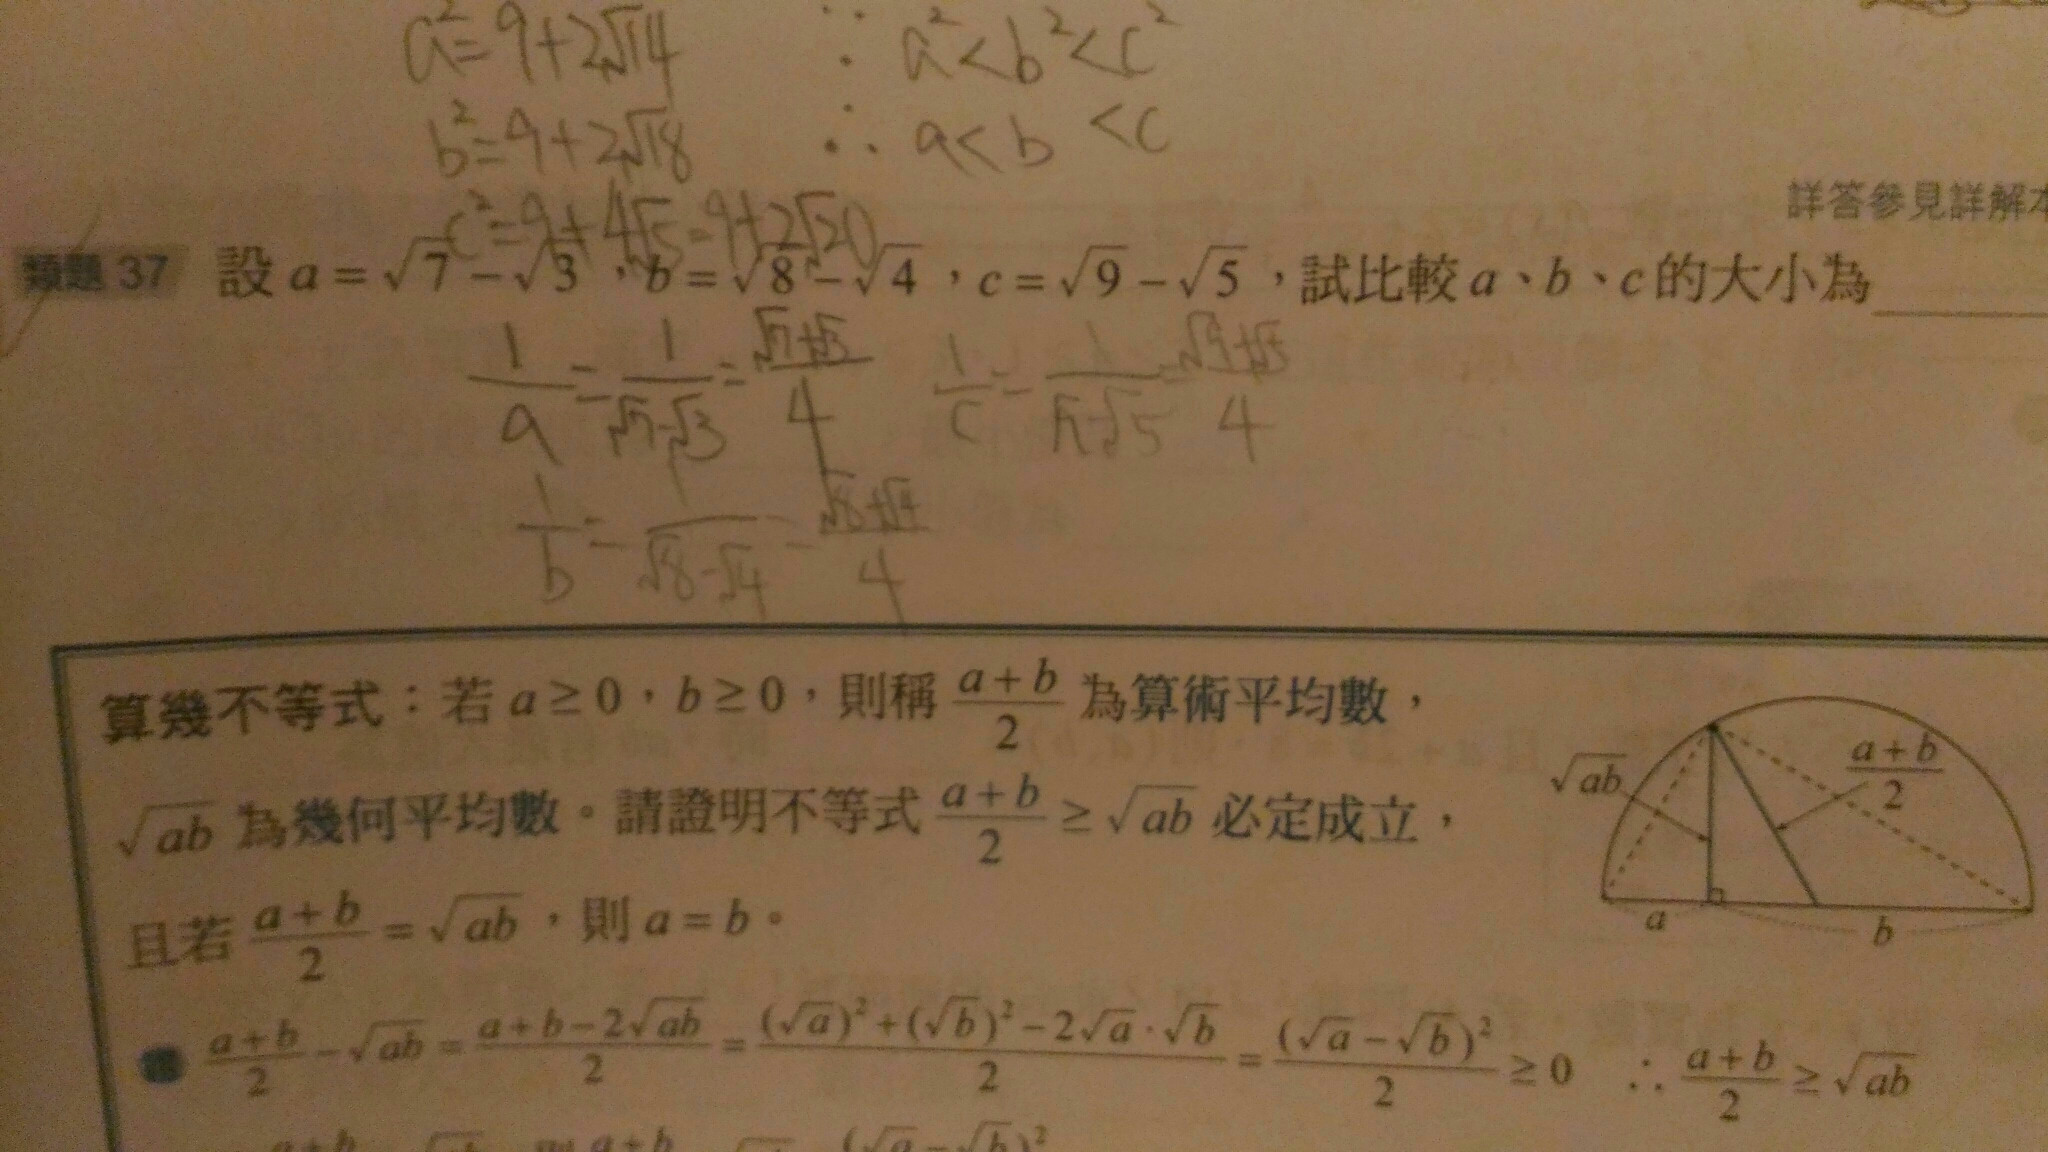 a²=9+2√14 ∵ a²<b²<c²
b²=9+2√18 ∴ a<b<c
c²=9+4√5=9+2√20
詳答參見詳解本
類題 37 設 a = √7 − √3，b = √8 − √4，c = √9 − √5，試比較 a、b、c 的大小為
1/a = 1/(√7-√3) = (√7+√3)/4 1/c = 1/(√-√5) = (√9+√5)/4
1/b = 1/(√8-√4) = (√8+√4)/4
算幾不等式：若 a ≥ 0，b ≥ 0，則稱 (a+b)/2 為算術平均數，
√ab 為幾何平均數。請證明不等式 (a+b)/2 ≥ √ab 必定成立，
且若 (a+b)/2 = √ab，則 a = b。
√ab
(a+b)/2
a
b
(a+b)/2 − √ab = (a+b−2√ab)/2 = ((√a)²+(√b)²−2√a·√b)/2 = (√a−√b)²/2 ≥ 0 ∴ (a+b)/2 ≥ √ab